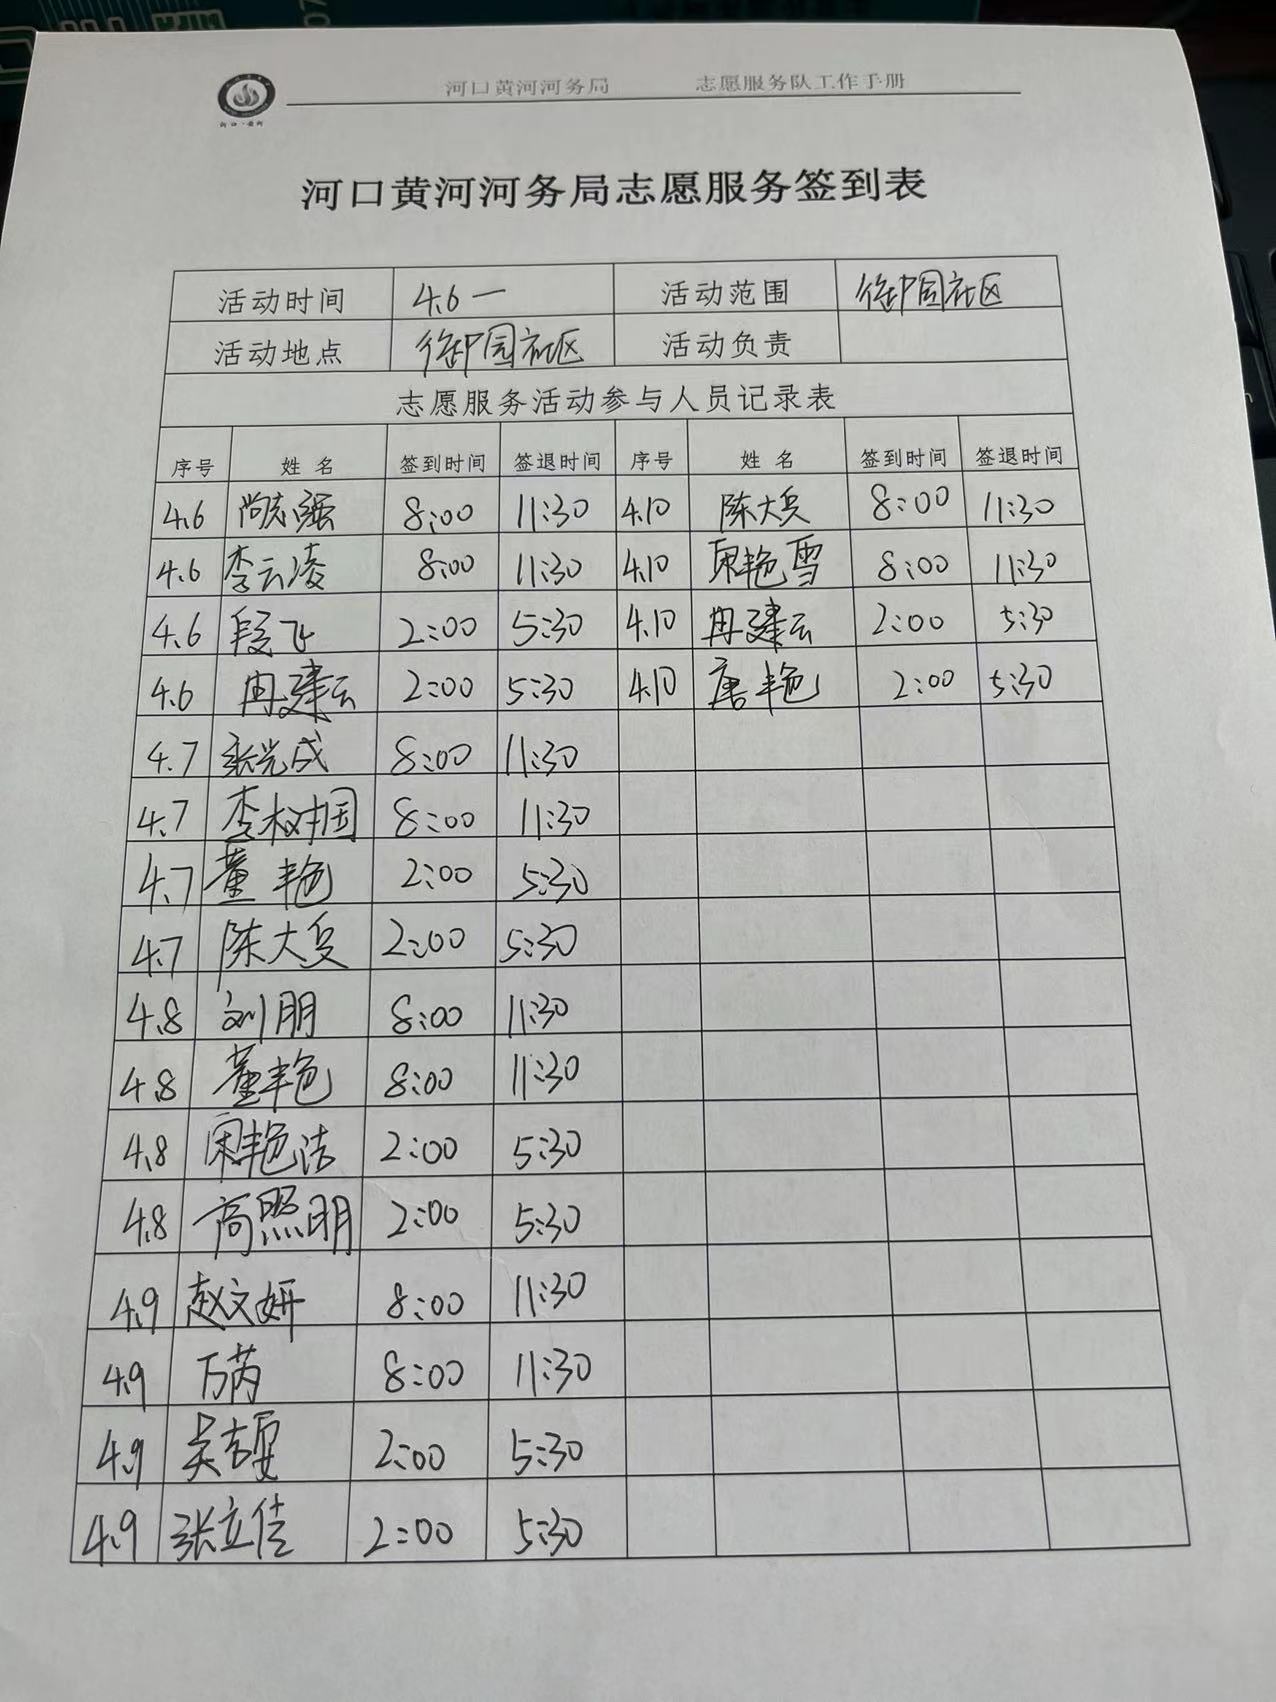 河口黄河河务局 志愿服务队工作手册
河口·黄河
河口黄河河务局志愿服务签到表
活动时间 4.6一 活动范围 御园社区
活动地点 御园社区 活动负责
志愿服务活动参与人员记录表
序号 姓名 签到时间 签退时间 序号 姓名 签到时间 签退时间
4.6 尚志强 8:00 11:30 4.10 陈大兵 8:00 11:30
4.6 李云凌 8:00 11:30 4.10 艳雪 8:00 11:30
4.6 段飞 2:00 5:30 4.10 冉建云 2:00 5:30
4.6 冉建云 2:00 5:30 4.10 唐艳 2:00 5:30
4.7 张光成 8:00 11:30
4.7 李树国 8:00 11:30
4.7 董艳 2:00 5:30
4.7 陈大兵 2:00 5:30
4.8 刘朋 8:00 11:30
4.8 董艳 8:00 11:30
4.8 艳洁 2:00 5:30
4.8 高照明 2:00 5:30
4.9 赵文妍 8:00 11:30
4.9 万芮 8:00 11:30
4.9 吴 2:00 5:30
4.9 张立佳 2:00 5:30